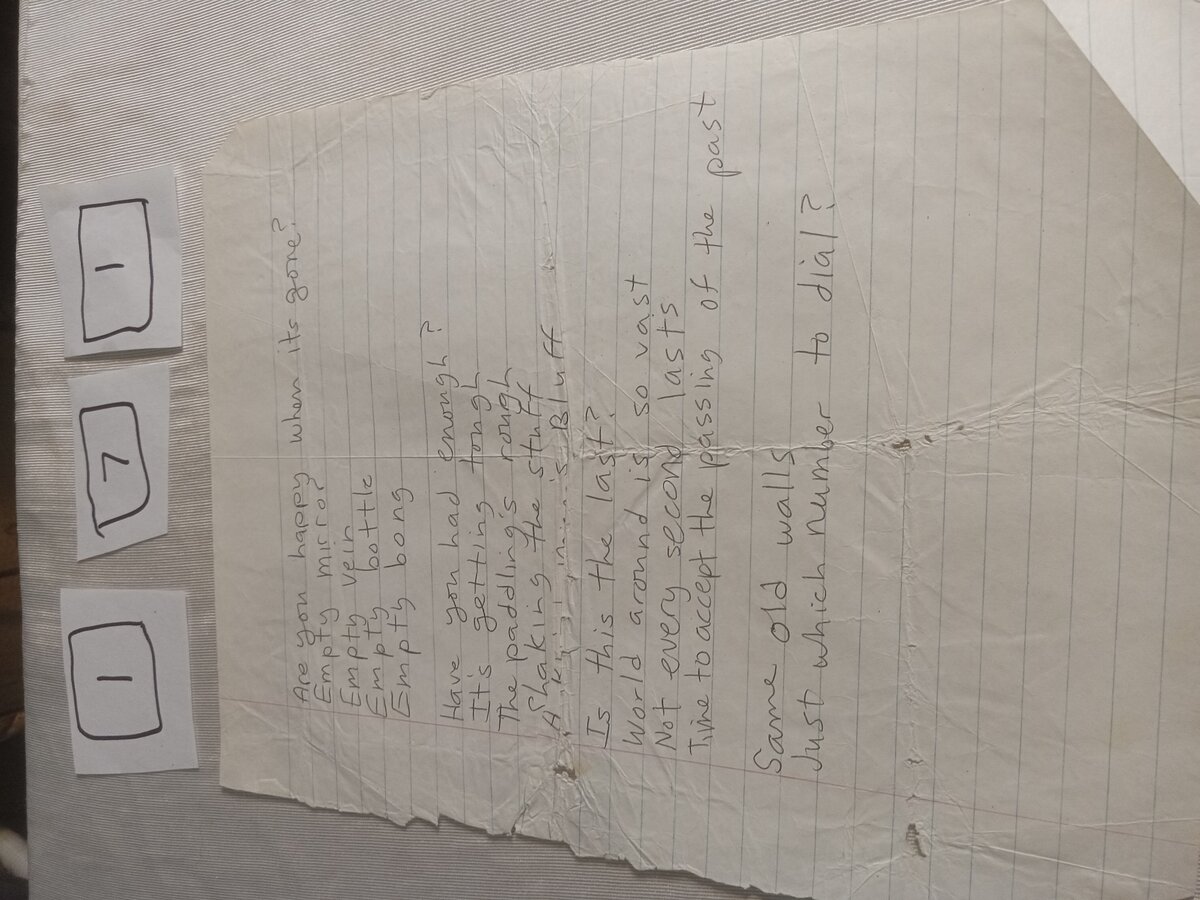 1
7
1
Are you happy when its gone?
Empty mirror
Empty vein
Empty bottle
Empty bong
Have you had enough?
It's getting tough
The paddling's rough
Shaking the stuff
A Bluff
Is this the last?
World around is so vast
Not every second lasts
Time to accept the passing of the past
Same old walls
Just which number to dial?